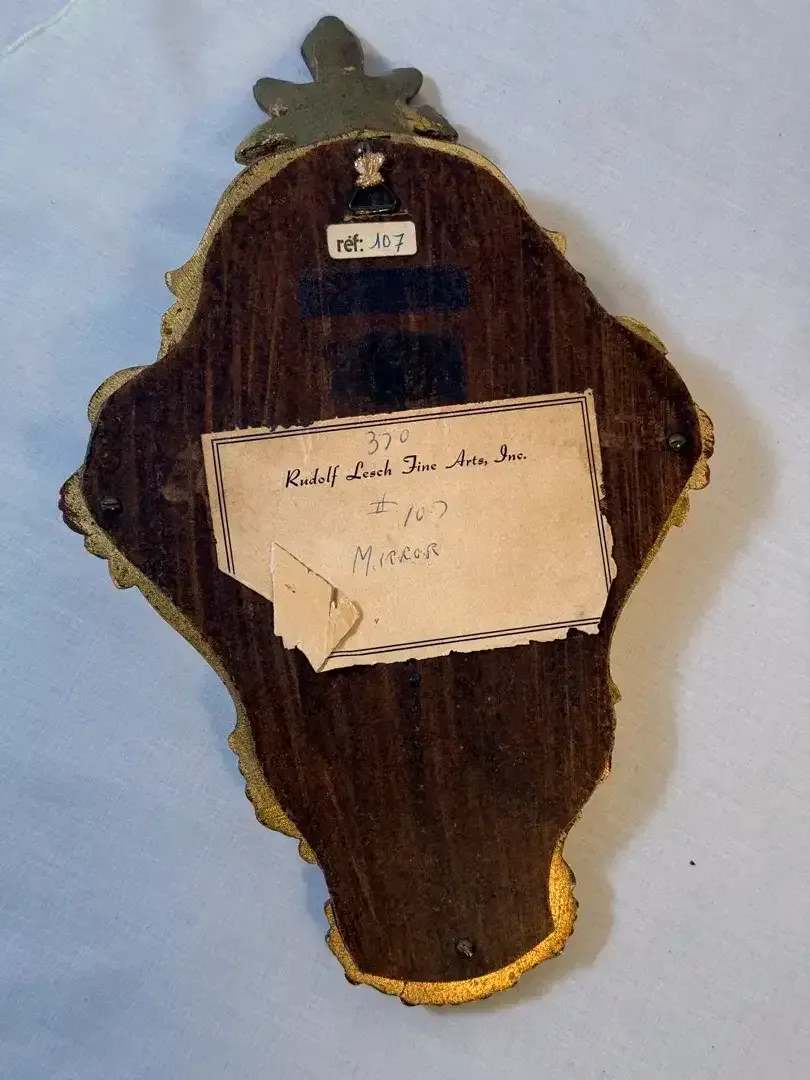 réf: 107
370
Rudolf Lesch Fine Arts, Inc.
# 107
MIRROR